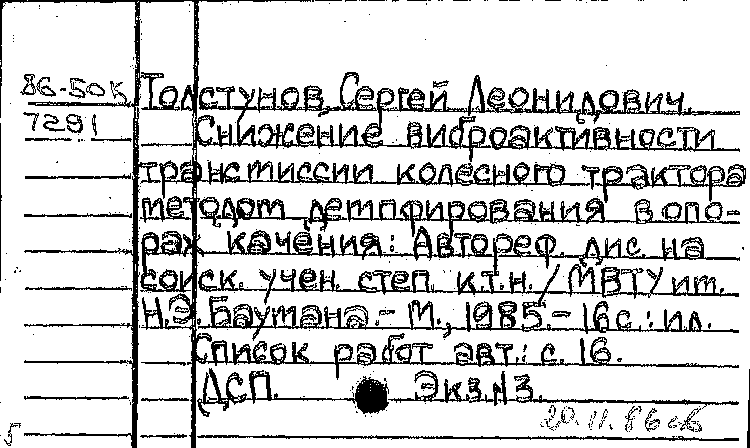 86-50к Толстунов, Сергей Леонидович.
7291 Снижение виброактивности
трансмиссии колесного трактора
методом демпфирования в опо-
рах качения: Автореф. дис. на
соиск. учен. степ. к.т.н. / МВТУ им.
Н.Э. Баумана. - М., 1985. - 16 с.: ил.
Список работ авт.: с. 16.
ДСП. Экз. N3.
20.11.86
5